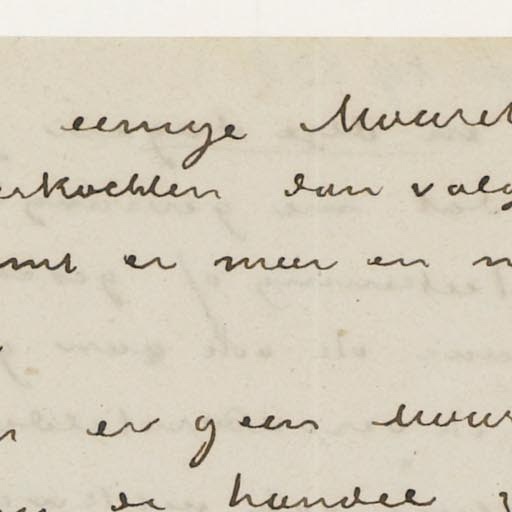 eenige Mouret
erkochten dan volg
omt er meer en m
er geen Mour
de handel